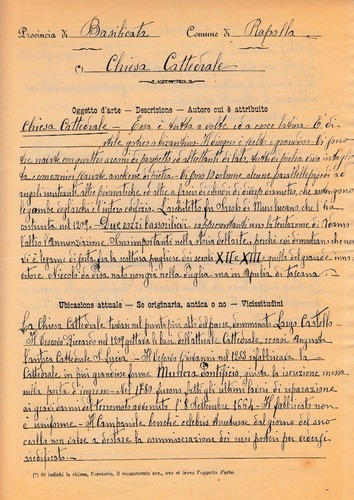 Provincia di Basilicata Comune di Rapolla
(*) Chiesa Cattedrale
Oggetto d'arte — Descrizione — Autore cui è attribuito
Chiesa Cattedrale — Essa è tutta a volte ed a croce latina. È di
stile gotico bizantino. Il disegno è bello e grandioso. Vi sono
tre navate con quattro archi di prospetto ed
comici pareti anche in pietra. Vi sono colonne, alcune parallelepipede ad
angoli rientranti, altre prismatiche ed altre a fasci di che sostengono
le gambe degli archi e l'intero edifizio. L'architetto fu Sarolo di Muro Lucano, che l'ha
costruita nel 1209. Due rozzi bassorilievi rappresentanti uno la tentazione di Adamo
l'altro l'Annunziazione. Sono importanti nella storia dell'arte, perchè ci domandiamo che non
vi è legame di sorta fra la scoltura pugliese dei secoli XII e XIII e quella del grande inno-
vatore. Nicolò da Pisa nato non già nella Puglia ma in Apulia di Toscana.
Ubicazione attuale — Se originaria, antica o no — Vicissitudini
La Chiesa Cattedrale trovasi nel punto più alto del paese, denominato Largo Castello.
Il Vescovo Riccardo nel 1209 gittava le basi dell'attuale Cattedrale, essai Angusta
l'antica Cattedrale S. Lucia. Il Vescovo Giovanni nel 1253 rifabbricava la
Cattedrale in più grandiose forme Munifera Pontificio, giusta la iscrizione messa
nella porta d'ingresso. Nel 1789 furono fatti gli ultimi lavori di riparazione
ai gravi danni del terremoto avvenuto l'8 Settembre 1694. Il fabbricato non
è uniforme. Il Campanile, benchè celebre struttura dal giorno del suo
crollo non valse a destare la commiserazione dei suoi posteri per vedersi
riedificato.
(*) Si indichi la chiesa, l'oratorio, il monumento ecc., ove si trova l'oggetto d'arte.